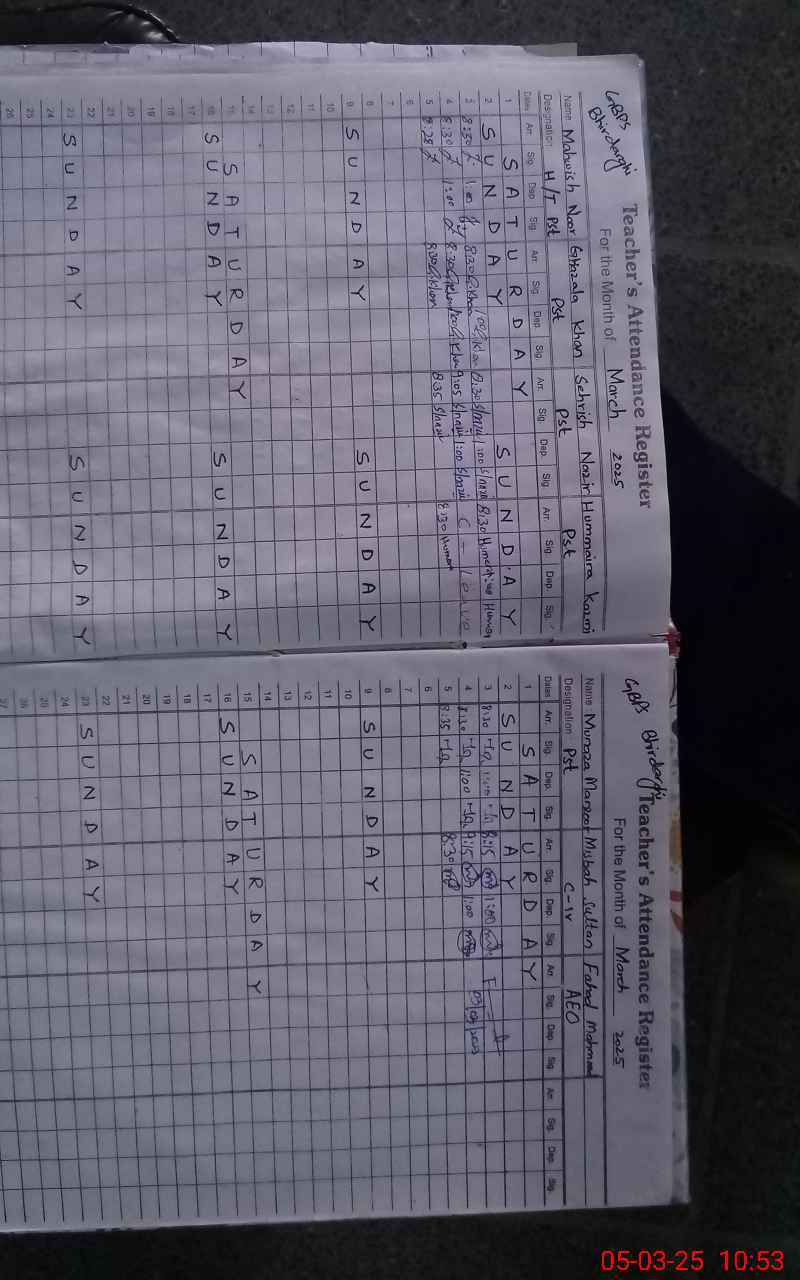 GBPS Bhirdarghi
Teacher's Attendance Register
For the Month of March 2025
Name: Mahwish Noor Ghazala Khan Sehrish Nazir Hummaira Kazmi
Designation: H/T Pst Pst Pst Pst
Dates Arr. Sig. Dep. Sig. Arr. Sig. Dep. Sig. Arr. Sig. Dep. Sig. Arr. Sig. Dep. Sig.
1 S A T U R D A Y
2 S U N D A Y S U N D A Y
3 8:30 1:00 8:30 G.Khan 1:00 G.Khan 8:30 S/nazir 1:00 S/nazir 8:30 Humera 1:00 Humera
4 8:30 1:00 8:30 G.Khan 1:00 G.Khan 9:05 S/nazir 1:00 S/nazir C - Leave
5 8:28 8:30 G.Khan 8:35 S/nazir 8:30 Humera
6
7
8
9 S U N D A Y S U N D A Y
10
11
12
13
14
15 S A T U R D A Y
16 S U N D A Y S U N D A Y
17
18
19
20
21
22
23 S U N D A Y S U N D A Y
24
25
26
GBPS Bhirdarghi
Teacher's Attendance Register
For the Month of March 2025
Name: Munaza Manzoor Misbah Sultan Fahad Mahmood
Designation: Pst C-iv AEO
Dates Arr. Sig. Dep. Sig. Arr. Sig. Dep. Sig. Arr. Sig. Dep. Sig. Arr. Sig. Dep. Sig.
1 S A T U R D A Y
2 S U N D A Y
3 8:30 1:00 8:15 1:00
4 8:30 1:00 9:15 1:00 03/03/2025
5 8:35 8:30
6
7
8
9 S U N D A Y
10
11
12
13
14
15 S A T U R D A Y
16 S U N D A Y
17
18
19
20
21
22
23 S U N D A Y
24
25
26
27
05-03-25 10:53